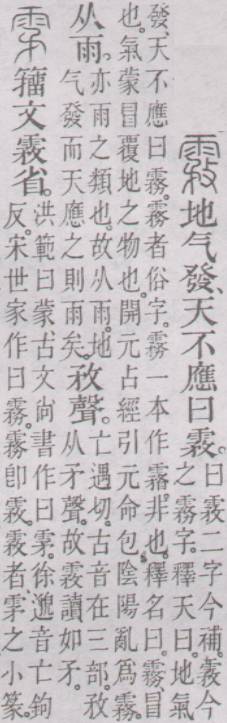 霚地气發、天不應曰霚。
曰霚二字今補。霚今
之霧字。釋天曰。地氣
發、天不應曰霧。霧者俗字。霧一本作霿。非也。釋名曰。霧、冒
也。氣蒙冒覆地之物也。開元占經引元命包。陰陽亂爲霧。
从雨。
亦雨之類也。故从雨。地
气發而天應之則雨矣。
敄聲。
亡遇切。古音在三部。敄
从矛聲。故霚讀如矛。
雺籒文霚省。
洪範曰蒙。古文尙書作曰雺。徐邈音亡鉤
反。宋世家作曰霧。霧卽霚。霚者雺之小篆。